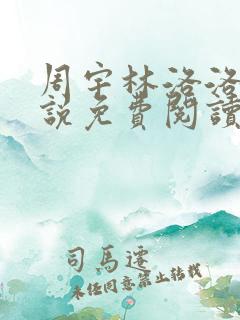 周宇林洛洛
說免費閱讀
司馬遷
未经同意禁止转载